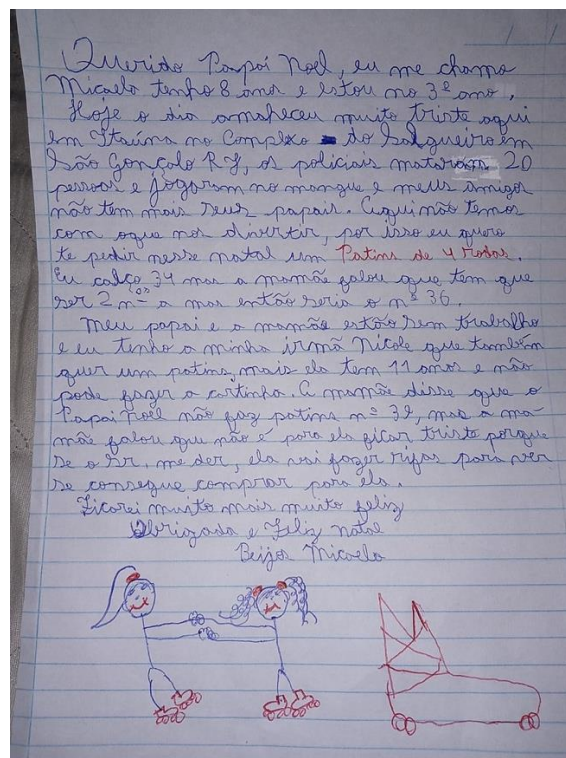 Querido Papai Noel, eu me chamo
Micaela tenho 8 anos e estou no 3º ano.
Hoje o dia amaheceu muito triste aqui
em Itaúna no Complexo do Salgueiro em
São Gonçalo RJ, os policiais mataram 20
pessoas e jogaram no mangue e meus amigos
não tem mais seus papais. Aqui não temos
com oque nos divertir, por isso eu quero
te pedir nesse natal um Patins de 4 rodas.
Eu calço 34 mas a mamãe falou que tem que
ser 2 nos a mas então seria o nº 36.
Meu papai e a mamãe estão sem trabalho
e eu tenho a minha irmã Nicole que também
quer um patins, mais ela tem 11 anos e não
pode fazer a cartinha. A mamãe disse que o
Papai Noel não faz patins nº 39, mas a ma-
mãe falou que não é para ela ficar triste porque
se o Sr. me der, ela vai fazer rifas para ver
se consegue comprar para ela.
Ficarei muito mais muito feliz
Obrigada e Feliz natal
Beijos Micaela